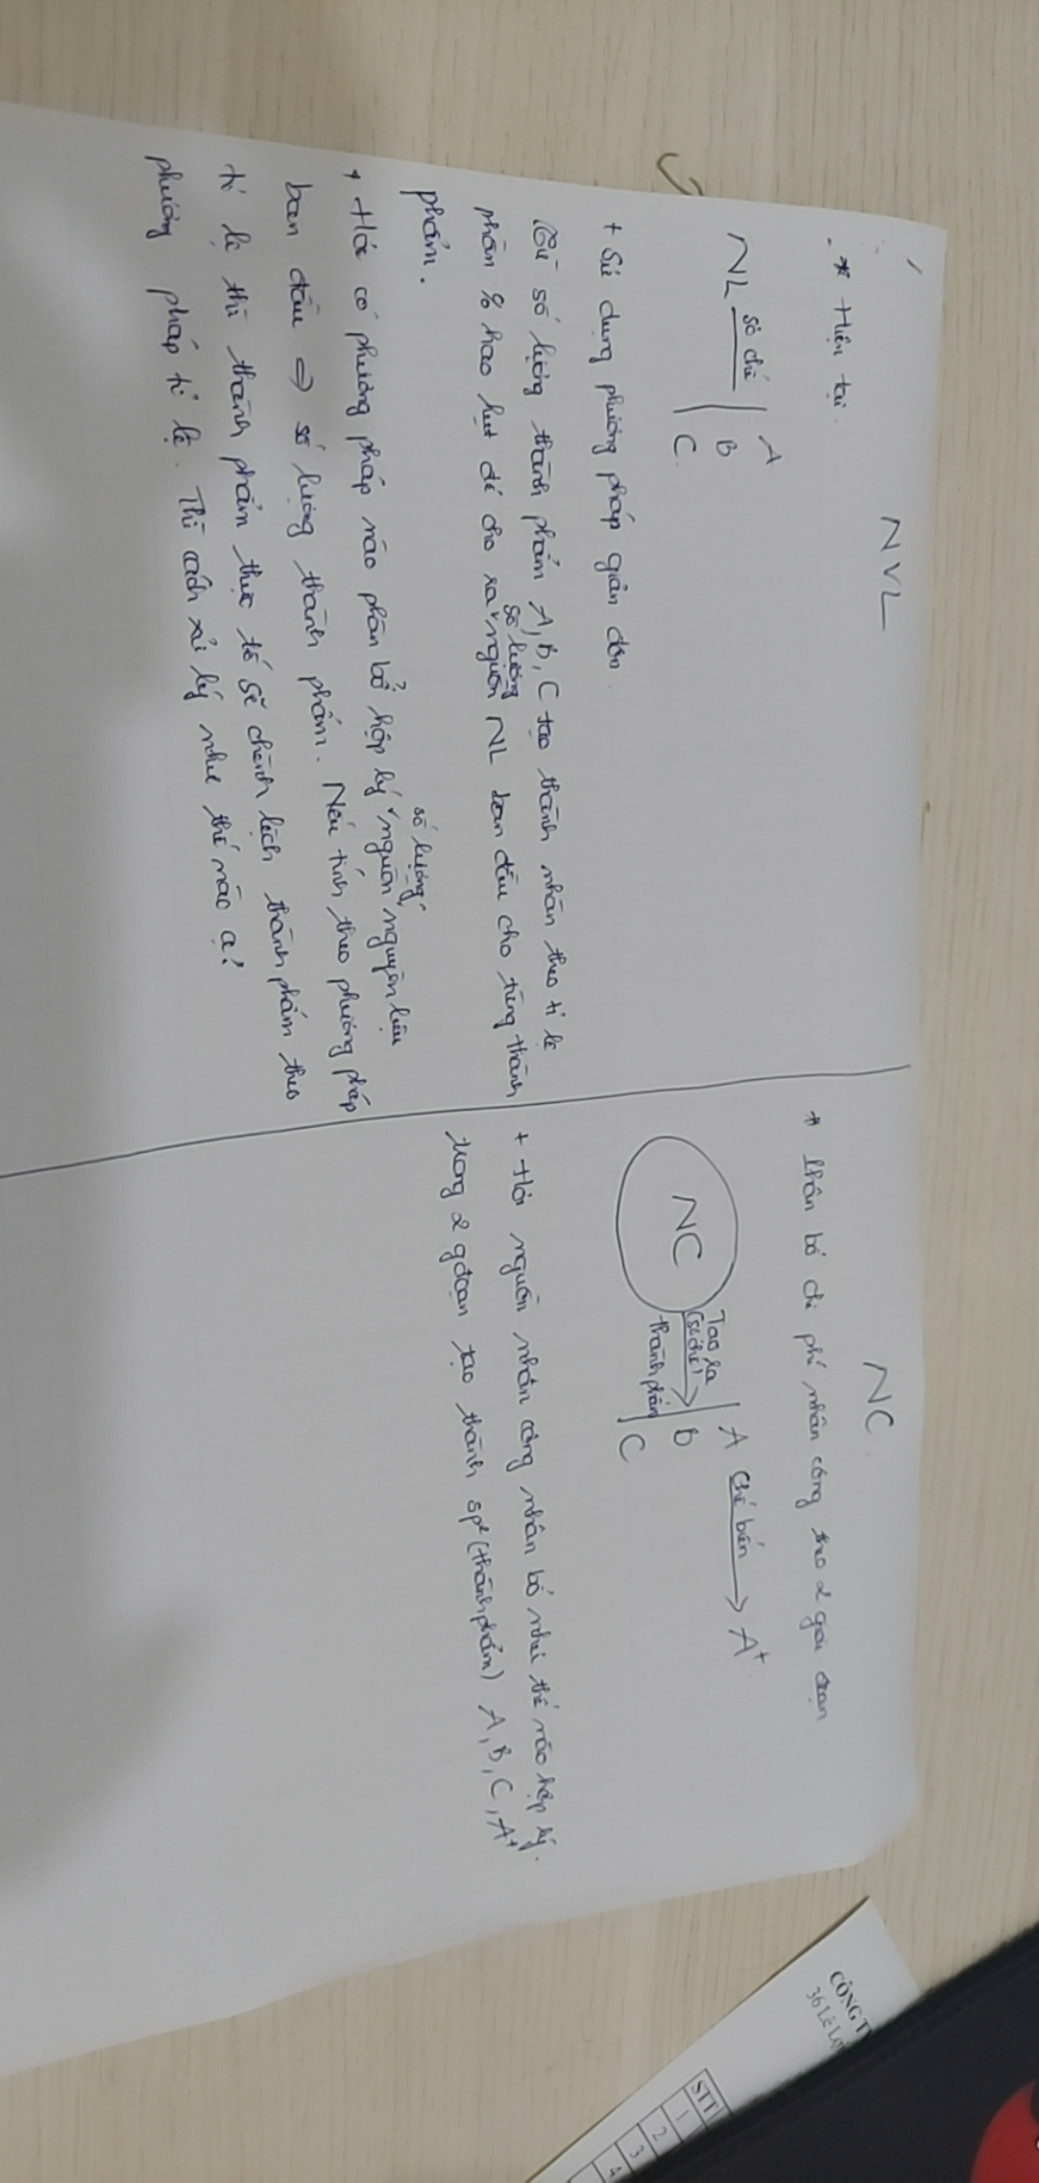 NVL
* Hiện tại.
NL sơ chế A
B
C
+ Sử dụng phương pháp giản đơn.
số lượng thành phẩm A, B, C tạo thành nhân theo tỉ lệ
phần % hao hụt để cho ra số lượng nguồn NL ban đầu cho từng thành
phẩm.
+ Hỏi có phương pháp nào phân bổ hợp lý số lượng nguồn nguyên liệu
ban đầu => số lượng thành phẩm. Nếu tính theo phương pháp
tỉ lệ thì thành phẩm thực tế sẽ chênh lệch thành phẩm theo
phương pháp tỉ lệ. Thì cách xử lý như thế nào ạ?
NC
* Phân bổ chi phí nhân công theo 2 giai đoạn
NC Tạo ra (sơ chế) thành phẩm A chế biến A+
B
C
+ Hỏi nguồn nhân công phân bổ như thế nào hợp lý.
trong 2 gđoạn tạo thành sp (thành phẩm) A, B, C, A+
CÔNG T
36 Lê Lợ
STT
1
2
3
4